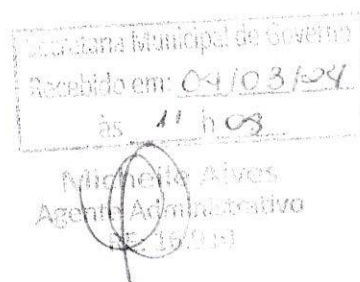 Secretaria Municipal de Governo
Recebido em: 04/03/04
às 11 h 08
Michelle Alves
Agente Administrativo